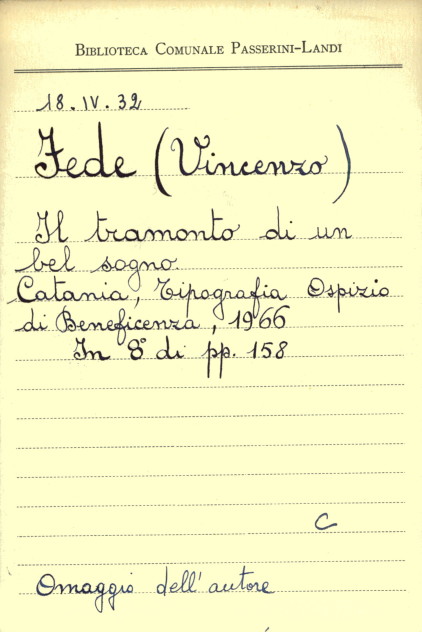 BIBLIOTECA COMUNALE PASSERINI-LANDI
18. IV. 32
Fede (Vincenzo)
Il tramonto di un
bel sogno.
Catania, Tipografia Ospizio
di Beneficenza, 1966
In 8° di pp. 158
C
Omaggio dell'autore